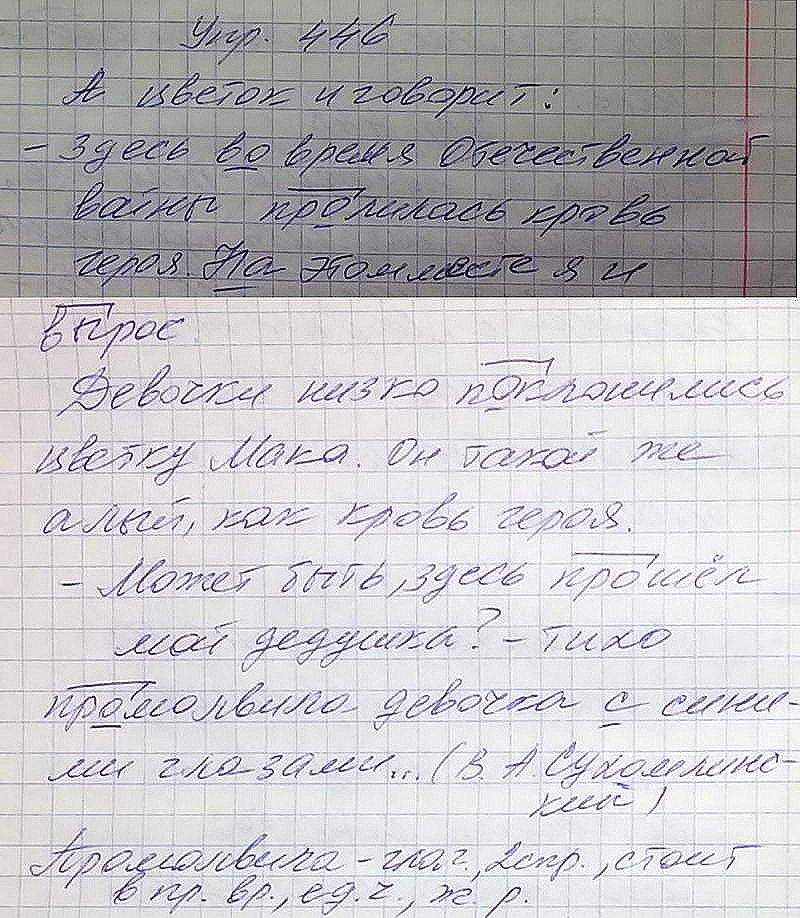 Упр. 446
А цветок и говорит:
- Здесь во время Отечественной
войны пролилась кровь
героя. На этом месте я и
вырос.
Девочки низко поклонились
цветку Мака. Он такой же
алый, как кровь героя.
- Может быть, здесь прошёл
мой дедушка? - тихо
промолвила девочка с сини-
ми глазами... (В. А. Сухомлинс-
кий)
Промолвила - глаг., 2 спр., стоит
в пр. вр., ед. ч., ж. р.